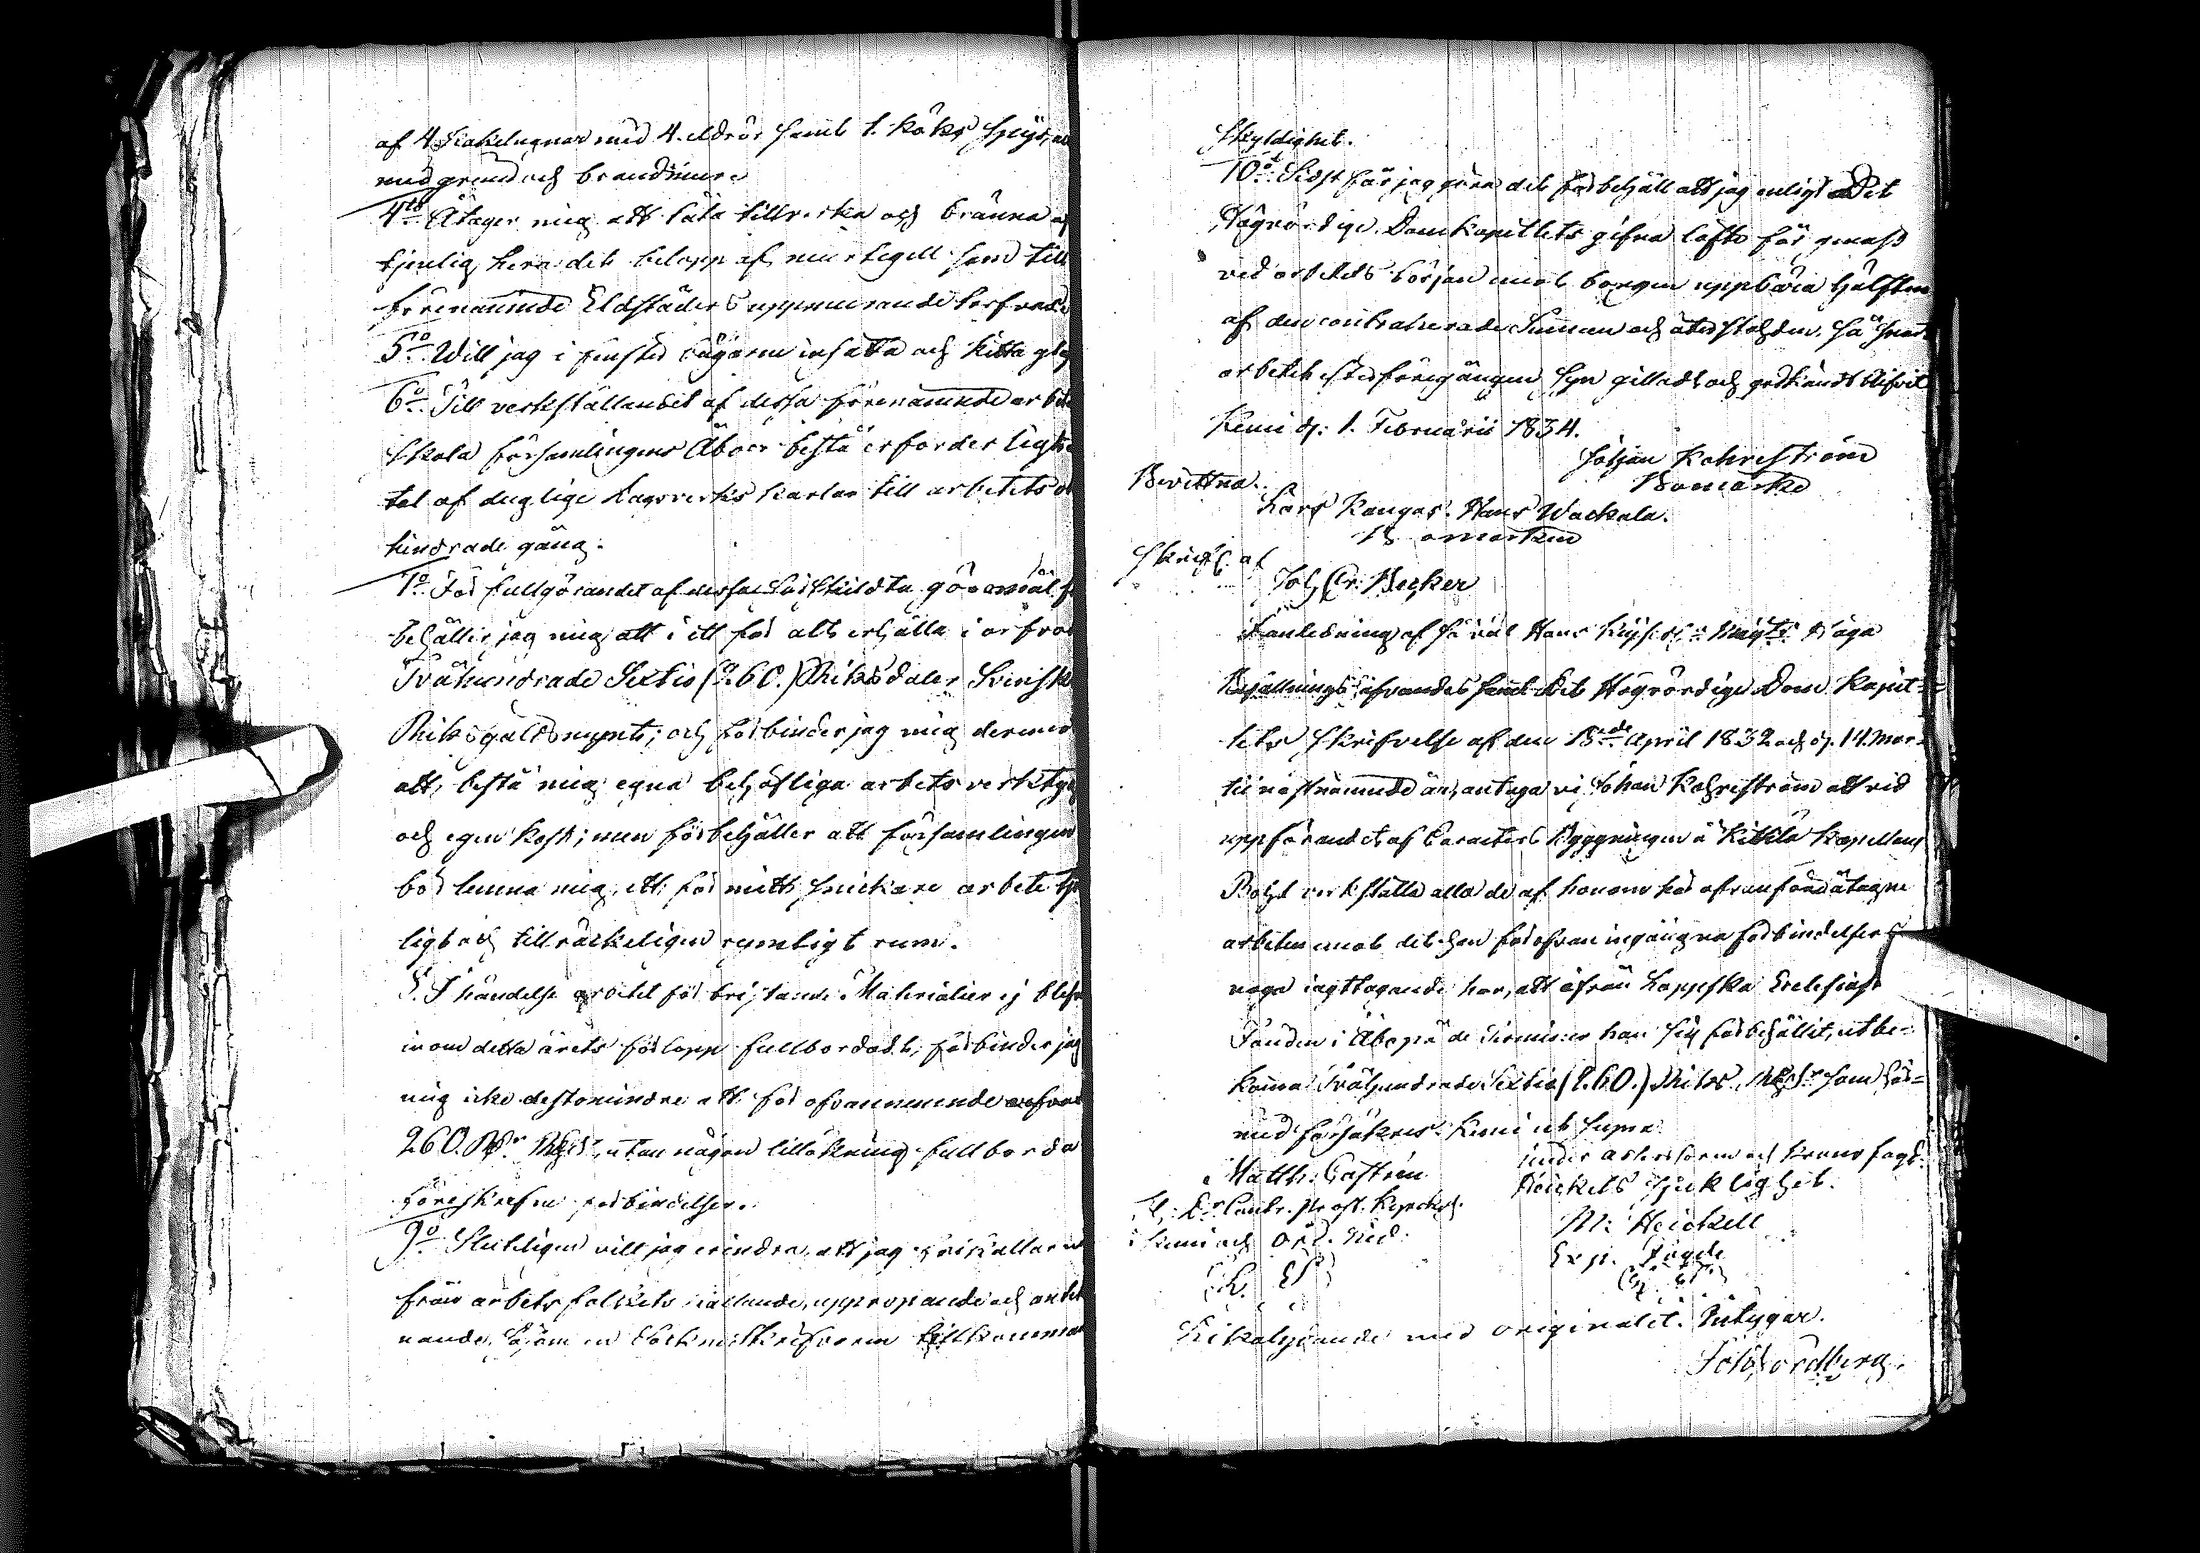 af 4 Kakelugnar med 4. eldrör samt 1. Köks spis,
med grund och brandmur.
4to Åtager mig att låta tillverka och bränna
tjenlig hera det belopp af murtegell som till
förenämnde Eldstäders uppmurande erfordr
5o Will jag i fenster bågarne insätta och kitta glas
6o Till verkställandet af dessa förenämnde arbete
skola församlingens Åboer bestå erforderligt
tal af duglige dagsverks karlar till arbetets o
hindrade gång.
7o För fullgörandet af dessa särskildta göromål f
behåller jag mig att i ett för allt erhålla i arfvod
Tvåhundrade Sextio (260.) Riksdaler Svensk
Riksgälds mynt; och förbinder jag mig dermed
att bestå mig egna behöfliga arbets verktyg
och egen kost; men förbehåller att församlingen
bör lemna mig ett för mitt snickare arbete tjen
ligt och tillräckeligen rymligt rum.
8. I händelse arbetet för bristande Materialier ej blefve
inom detta årets förlopp fullbordadt, förbinder jag
mig icke destomindre att för ofvannemnde arfvod
260. Rdr Rgds, utan någon tillökning fullborda
föreskrefne förbindelser.
9o Sluteligen vill jag erindra, att jag frikallar m
från arbets folkets kallande, uppropande och anteck
nande, såsom en Socknskrifvaren tillkomman
Skyldighet.
10o Sidst får jag göra det förbehåll att jag enligt Det
Högvördige Domkapitlets gifna löfte får genast
vid arbetets början mot borgen uppbära hälften
af den contraherade Summan och återstoden, så snart
arbetet efter föregången syn gilladt och godkändt blifvit
Kemi d. 1. Februarii 1834.
Johan Kohrström
Bomärke
Bevittna.
Lars Kangas. Hans Wackala.
Bomärken
Skrifvit af
Joh. Er. Becker
I anledning af så väl Hans Kejs. Majts Höga
Befallnings hafvandes samt Det Högvördige Dom Kapit=
lets skrifvelse af den 18de April 1832 och d. 14. Mar=
tii nästnämnde år, antaga vi Johan Kohrström att vid
uppförandet af Caracters byggningen å Kittilä Kapellans
Bohl verkställa alla de af honom här ofvanföre åtagne
arbeten mot det han för ofvan ingångna förbindelsers
noga iagttagande har, att ifrån Lappska Ecclesiast
Fonden i Åbo på de Terminer han sig förbehållit, utbe=
komma Tvåhundrade Sextio (260.) Riksd. Rgds som här=
med försäkras. Kemi ut supra.
Matth. Castrén
Contr. Prost. Kyrckoh.
i Kemi och Ord. Led.
(L. S.)
under återstoden och Krono fogd.
Heickels sjuklighet.
M: Heickell
Exp. Fogde
(L. S.)
Likalydande med originalet. Intygar.